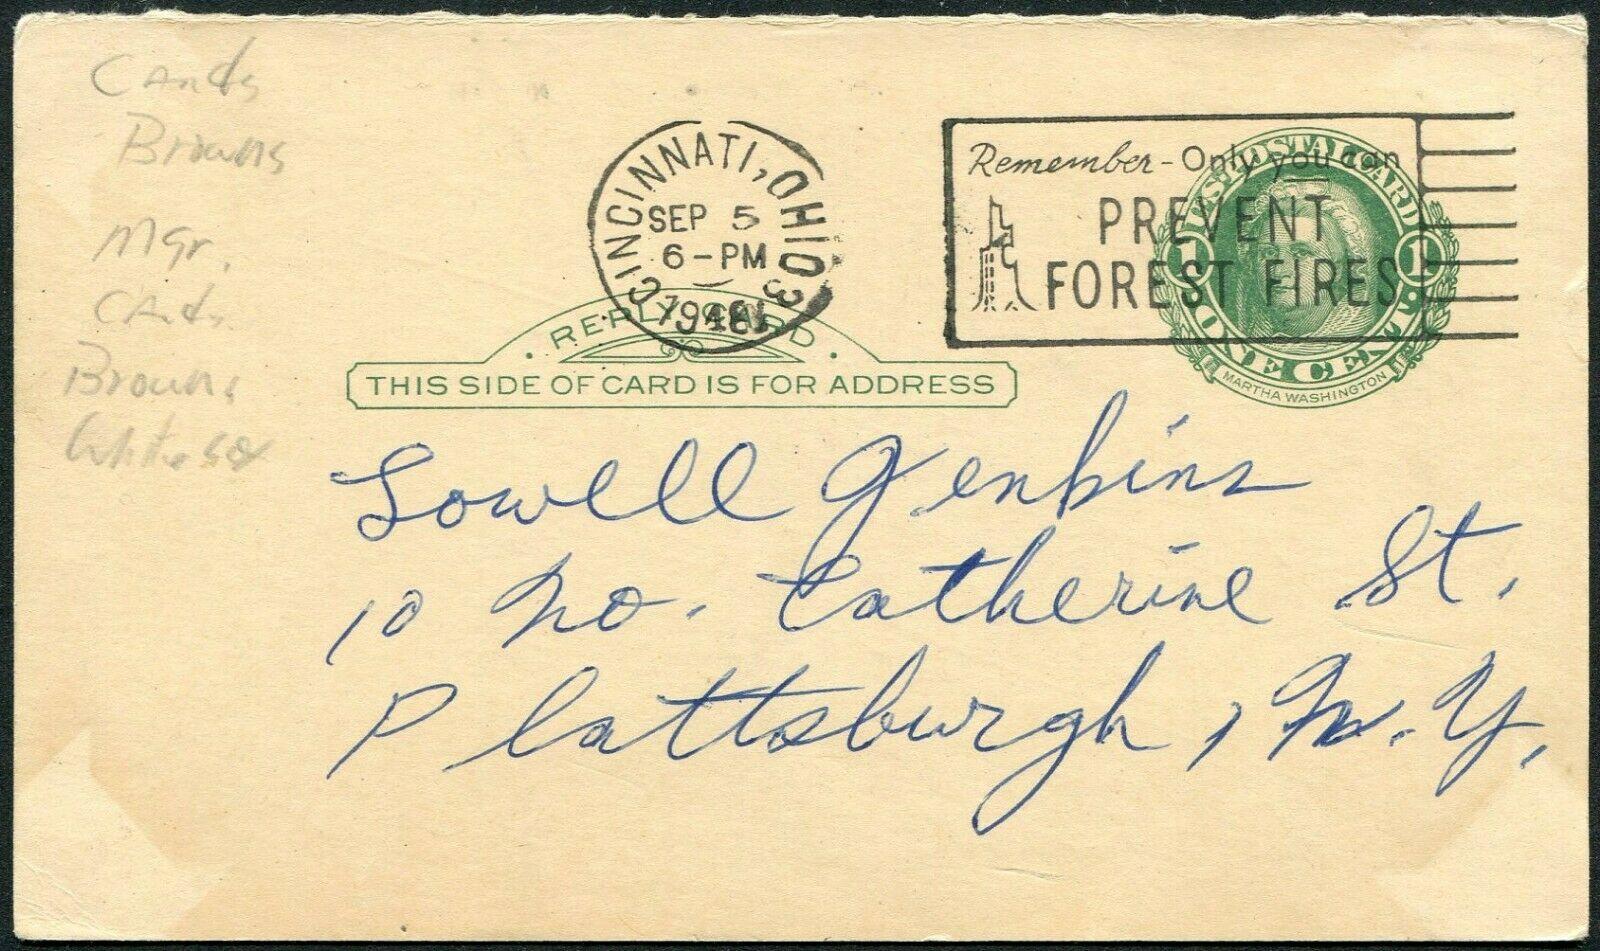 Cards
Browns
Mgr.
Cards
Browns
White Sox
CINCINNATI, OHIO 3
SEP 5
6-PM
1948
Remember - Only you can
PREVENT
FOREST FIRES
U.S. POSTAL CARD
1 1
ONE CENT
MARTHA WASHINGTON
· REPLY CARD ·
THIS SIDE OF CARD IS FOR ADDRESS
Lowell Jenkins
10 No. Catherine St.
Plattsburgh, N.Y.